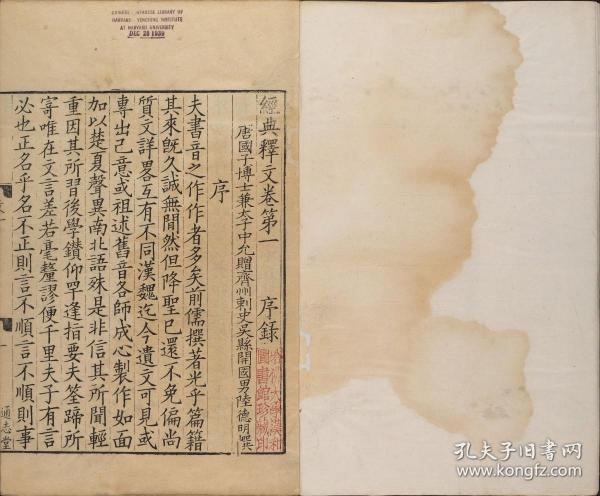 CHINESE-JAPANESE LIBRARY OF
HARVARD-YENCHING INSTITUTE
AT HARVARD UNIVERSITY
DEC 28 1939
經典釋文卷第一 序録
唐國子博士兼太子中允贈齊州刺史吳縣開國男陸德明撰
哈佛大學漢和
圖書館珍藏印
序
夫書音之作作者多矣前儒撰著光乎篇籍
其來旣久誠無閒然但降聖已還不免偏尚
質文詳畧互有不同漢魏迄今遺文可見或
專出己意或祖述舊音各師成心製作如面
加以楚夏聲異南北語殊是非信其所聞輕
重因其所習後學鑚仰罕逢指要夫筌蹄所
寄唯在文言差若毫釐謬便千里夫子有言
必也正名乎名不正則言不順言不順則事
通志堂
孔夫子旧书网
www.kongfz.com